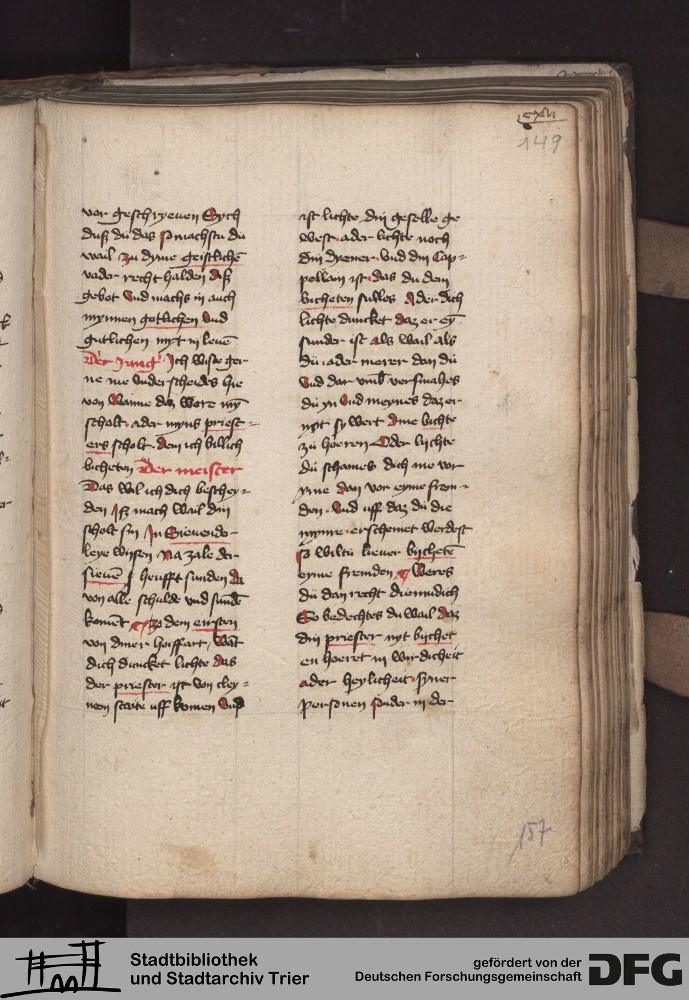 cxlii
149
vor geschryeuen Sych
duß du das so machstu du
wail zu dyme geistlichē
vader recht halden diß
gebot Vnd machs in auch
mynnen gotlichen Vnd
gutlichen myt in leuē
Der Jung Ich wiste ger
ne me vnderscheides hie
von Wanne daz were my
scholt ader myns priest-
ers scholt dem ich billich
bichten Der meister
Das wil ich dich beschey-
den Iß mach wail din
scholt sin In Sieuendo
leye wysen Na zale der
sieuē heufft sunden da
von alle schulde vnd sundē
komēt zo dem eirsten
von diner hoiffart Wāt
dich duncket lichte das
der priester ist von cley-
nem staete uff komen Vnd
ist lichte din geselle ge
west ader lichte noch
din dyener Vnd din Cap-
pellain ist das du dem
bicheten sulles Ader dich
lichte duncket daz er eyn
sunder ist als wail als
du ader merer dan du
Vnd dar vmb versmahes
du yn Vnd meynes daz er
nyt sy wert dine bichte
zu hoeren Oder lichte
du schames dich me vor
yme dan vor eyme frem-
den Vnd uff daz du die
mynre erschemet werdest
so wiltu lieuer bychetē
eyme fremden Weres
du dan recht diemudich
So bedechtes du wail daz
din priester nyt bychet
en hoeret in wirdicheit
ader heylicheit syner
personen sonder in der
157
Stadtbibliothek
und Stadtarchiv Trier
gefördert von der
Deutschen Forschungsgemeinschaft
DFG